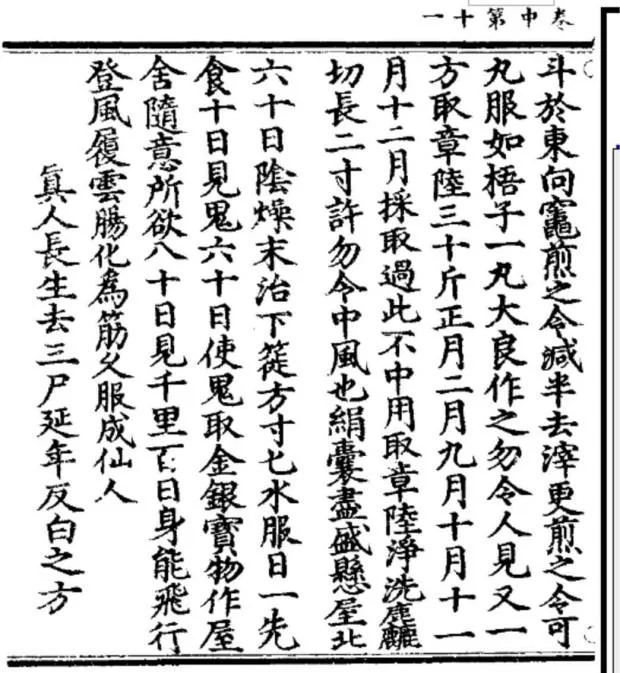 卷中第十一
斗於東向竈煎之令減半去滓更煎之令可
丸服如梧子一丸大良作之勿令人見又一
方取章陸三十斤正月二月九月十月十一
月十二月採取過此不中用取章陸淨洗麁麤
切長二寸許勿令中風也絹囊盡盛懸屋北
六十日陰燥末治下簁方寸匕水服日一先
食十日見鬼六十日使鬼取金銀寶物作屋
舍隨意所欲八十日見千里百日身能飛行
登風履雲腸化為筋久服成仙人
真人長生去三尸延年反白之方